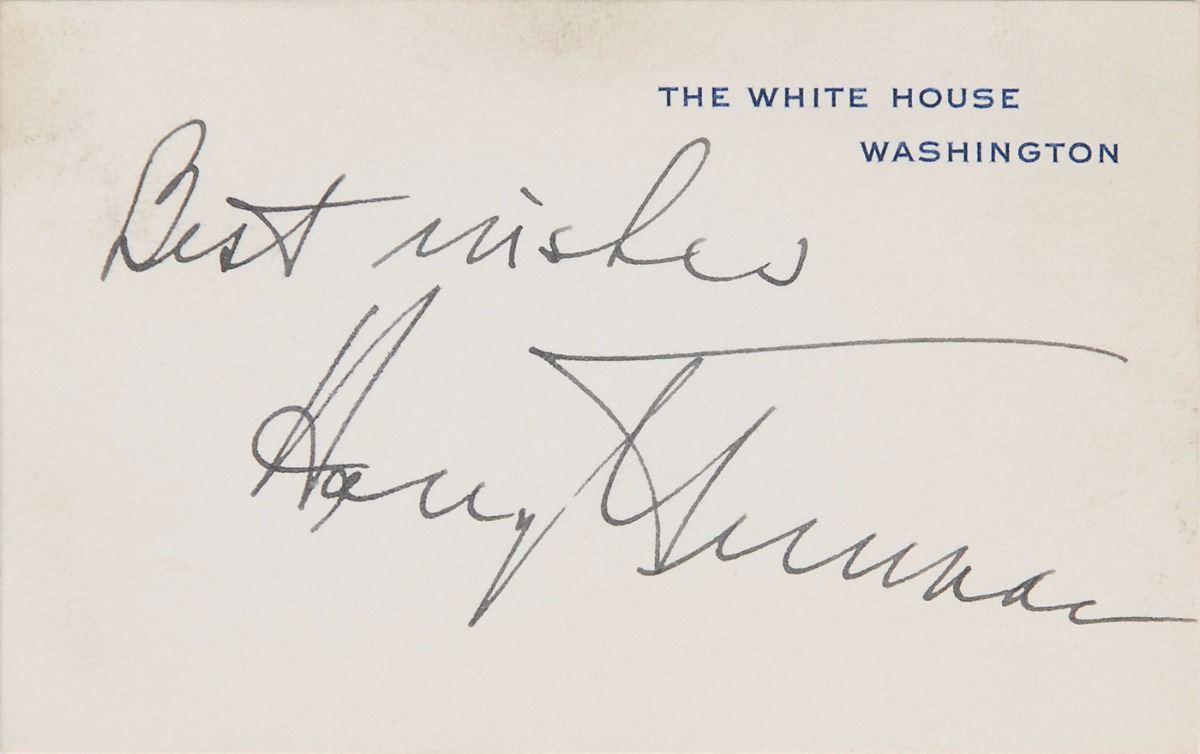 THE WHITE HOUSE
WASHINGTON
Best wishes
Harry Truman